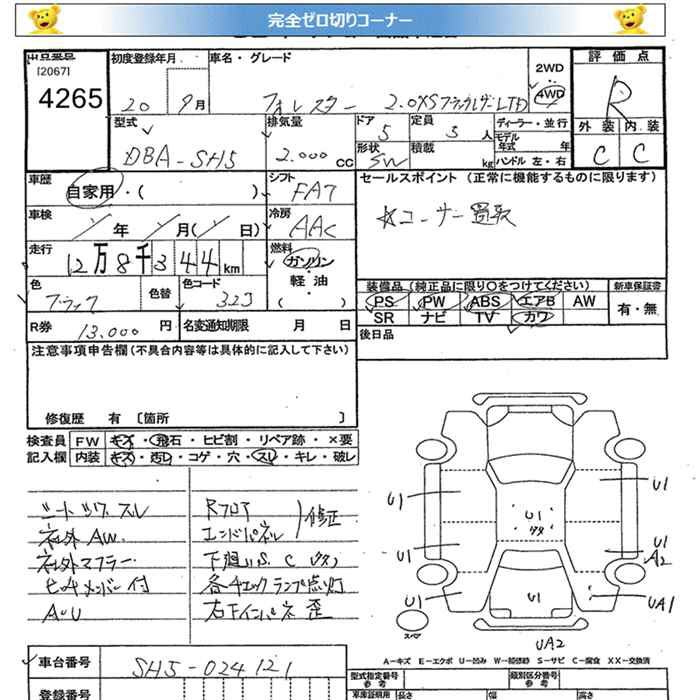 完全ゼロ切りコーナー
出品番号 初度登録年月 車名・グレード 2WD 評価点
[2067] 4WD R
4265 20 9月 フォレスター 2.0XSブラックレザーLTD 外装 内装
C C
型式 排気量 ドア 定員 ディーラー・並行
DBA-SH5 2.000cc 5 5人 モデル年式 年
形状 積載 ハンドル 左・右
SW kg
車歴 シフト セールスポイント (正常に機能するものに限ります)
自家用・( ) FAT
車検 冷房 ☆コーナー買取
/年 /月(/日) AAC
走行 燃料
12万8千344km ガソリン・軽油
( )
色 色替 色コード 装備品(純正品に限り○をつけてください) 新車保証書
ブラック 32J PS PW ABS エアB AW 有・無
SR ナビ TV カワ
R券 13,000円 名変通知期限 月 日 後日品
注意事項申告欄(不具合内容等は具体的に記入して下さい)
修復歴 有 [箇所 ]
検査員 FW キズ・飛石・ヒビ割・リペア跡・×要
記入欄 内装 キズ・汚レ・コゲ・穴・スレ・キレ・破レ
シートシワスレ Rフロア
社外AW エンドパネル 修正
社外マフラー 下廻りS.C
ヒッチメンバー付 各チェックランプ点灯
AいU 右下インパネ歪
U1 U1 U1 U1 U1 A2 U1 U1 UA1
スペア UA2
A-キズ E-エクボ U-凹み W-補修跡 S-サビ C-腐食 XX-交換済
車台番号 SH5-024121 型式指定番号 参考 類別区分番号 参考
登録番号 車庫証明用 長さ 幅 高さ